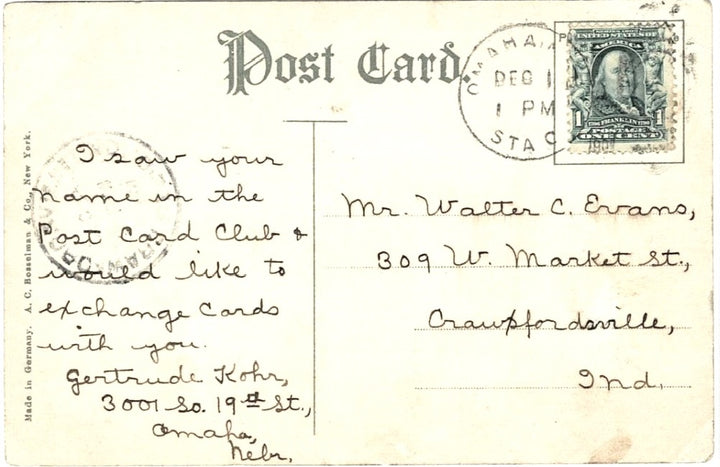 Post Card.
OMAHA
DEC 1
1 PM
STA C
1907
UNITED STATES OF
AMERICA
1 1
FRANKLIN
POSTAGE
ONE CENT
I saw your
name in the
Post Card Club &
would like to
exchange cards
with you.
Gertrude Kohr,
3001 So. 19th St.,
Omaha,
Nebr.
Mr. Walter C. Evans,
309 W. Market St.,
Crawfordsville,
Ind.
Made in Germany. A. C. Bosselman & Co., New York.